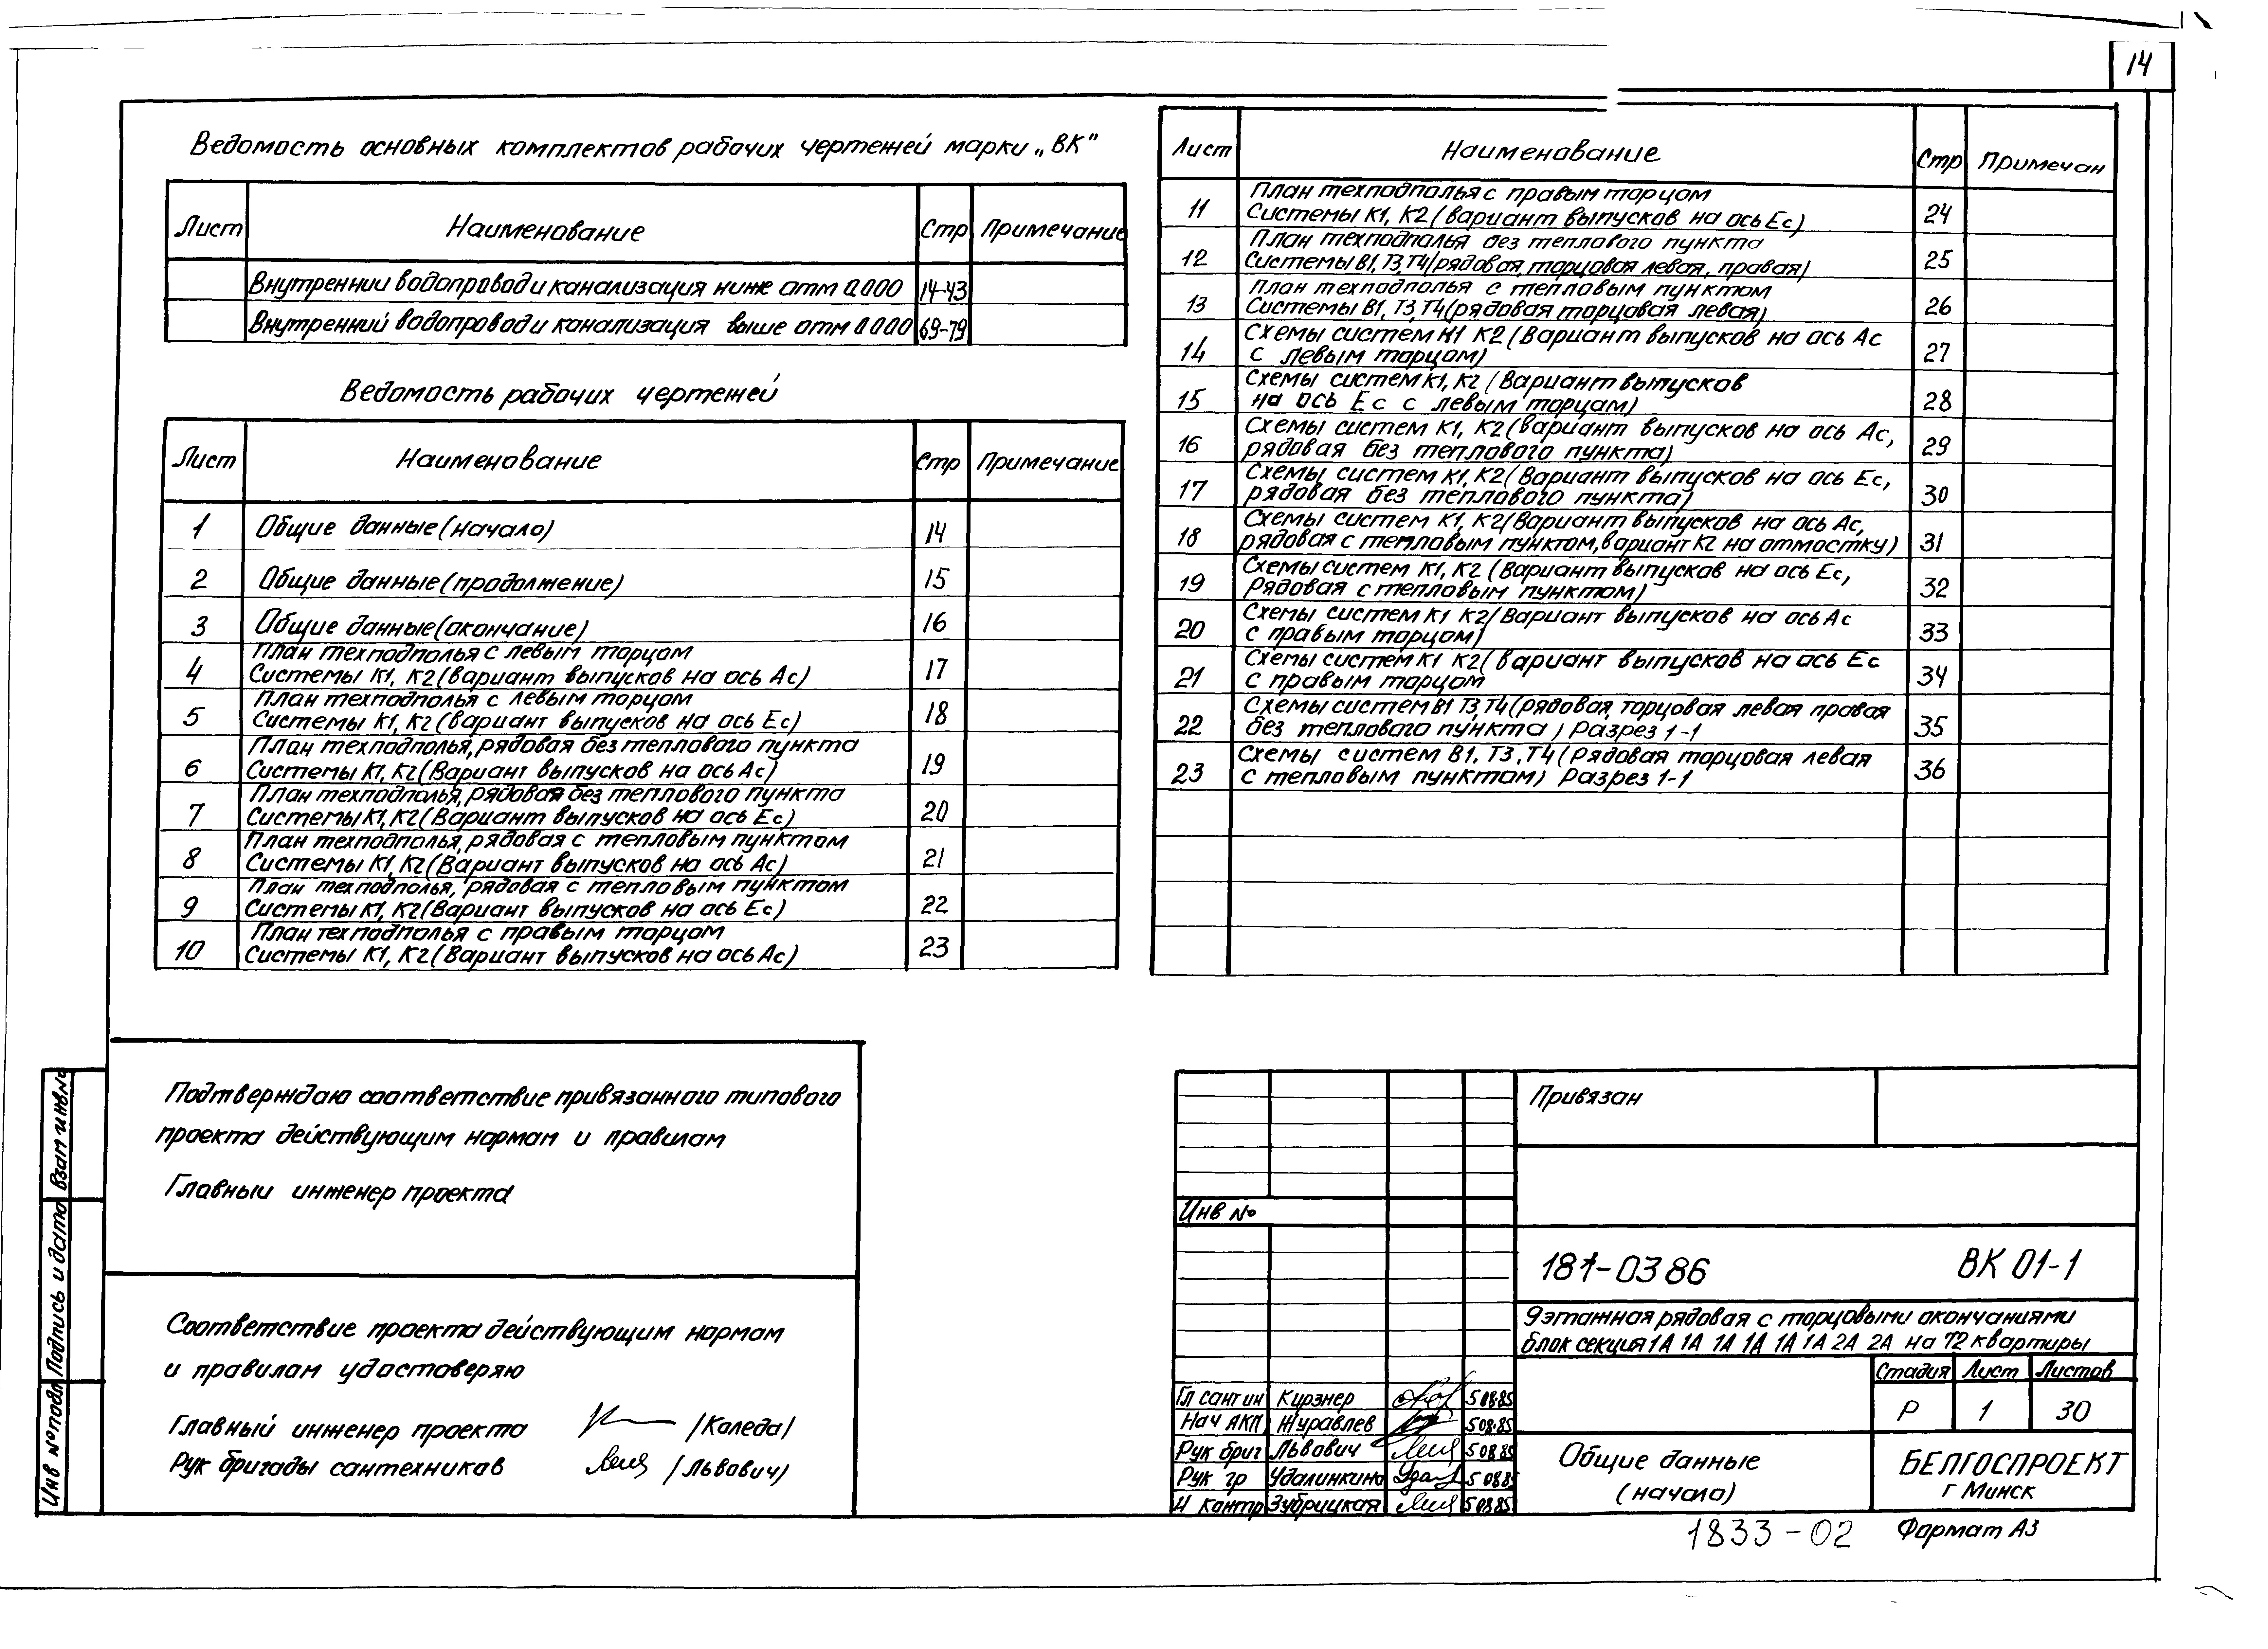 14
Ведомость основных комплектов рабочих чертежей марки „ВК"
Лист Наименование Стр Примечание
Внутреннии водопровод и канализация ниже отм 0.000 14-43
Внутренний водопровод и канализация выше отм 0.000 69-79
Ведомость рабочих чертежей
Лист Наименование Стр Примечание
1 Общие данные (начало) 14
2 Общие данные (продолжение) 15
3 Общие данные (окончание) 16
План техподполья с левым торцом
4 Системы К1, К2 (вариант выпусков на ось Ас) 17
План техподполья с левым торцом
5 Системы К1, К2 (вариант выпусков на ось Ес) 18
План техподполья, рядовая без теплового пункта
6 Системы К1, К2 (Вариант выпусков на ось Ас) 19
План техподполья, рядовая без теплового пункта
7 Системы К1, К2 (Вариант выпусков на ось Ес) 20
План техподполья, рядовая с тепловым пунктом
8 Системы К1, К2 (Вариант выпусков на ось Ас) 21
План техподполья, рядовая с тепловым пунктом
9 Системы К1, К2 (Вариант выпусков на ось Ес) 22
План техподполья с правым торцом
10 Системы К1, К2 (Вариант выпусков на ось Ас) 23
Лист Наименование Стр Примечан
План техподполья с правым торцом
11 Системы К1, К2 (вариант выпусков на ось Ес) 24
План техподполья без теплового пункта
12 Системы В1, Т3, Т4 (рядовая, торцовая левая, правая) 25
План техподполья с тепловым пунктом
13 Системы В1, Т3, Т4 (рядовая торцовая левая) 26
Схемы систем К1 К2 (Вариант выпусков на ось Ас
14 с левым торцом) 27
Схемы систем К1, К2 (Вариант выпусков
15 на ось Ес с левым торцом) 28
Схемы систем К1, К2 (вариант выпусков на ось Ас,
16 рядовая без теплового пункта) 29
Схемы систем К1, К2 (Вариант выпусков на ось Ес,
17 рядовая без теплового пункта) 30
Схемы систем К1, К2 (Вариант выпусков на ось Ас,
18 рядовая с тепловым пунктом, вариант К2 на отмостку) 31
Схемы систем К1, К2 (Вариант выпусков на ось Ес,
19 Рядовая с тепловым пунктом) 32
Схемы систем К1 К2 (Вариант выпусков на ось Ас
20 с правым торцом) 33
Схемы систем К1 К2 (Вариант выпусков на ось Ес
21 с правым торцом 34
Схемы систем В1 Т3, Т4 (рядовая, торцовая левая правая
22 без теплового пункта) Разрез 1-1 35
Схемы систем В1, Т3, Т4 (Рядовая торцовая левая
23 с тепловым пунктом) Разрез 1-1 36
Подтверждаю соответствие привязанного типового
проекта действующим нормам и правилам
Главныи инженер проекта
Соответствие проекта действующим нормам
и правилам удостоверяю
Главный инженер проекта /Коледа/
Рук бригады сантехников /Львович)
Взам инв.№
Подпись и дата
Инв № подл
Привязан
Инв №
181-0386 ВК 01-1
9этажная рядовая с торцовыми окончаниями
блок секция 1А 1А 1А 1А 1А 1А 2А 2А на 72 квартиры
Стадия Лист Листов
Р 1 30
Гл сантин Курзнер 50885
Нач АКП Журавлев 508·85
Рук бриг Львович 50885
Рук гр Удалинкина 50885
Н контр Зубрицкая 50885
Общие данные
(начало)
БЕЛГОСПРОЕКТ
г Минск
1833-02 Формат А3